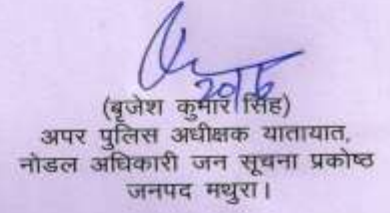 20/6
(बृजेश कुमार सिंह)
अपर पुलिस अधीक्षक यातायात,
नोडल अधिकारी जन सूचना प्रकोष्ठ
जनपद मथुरा।